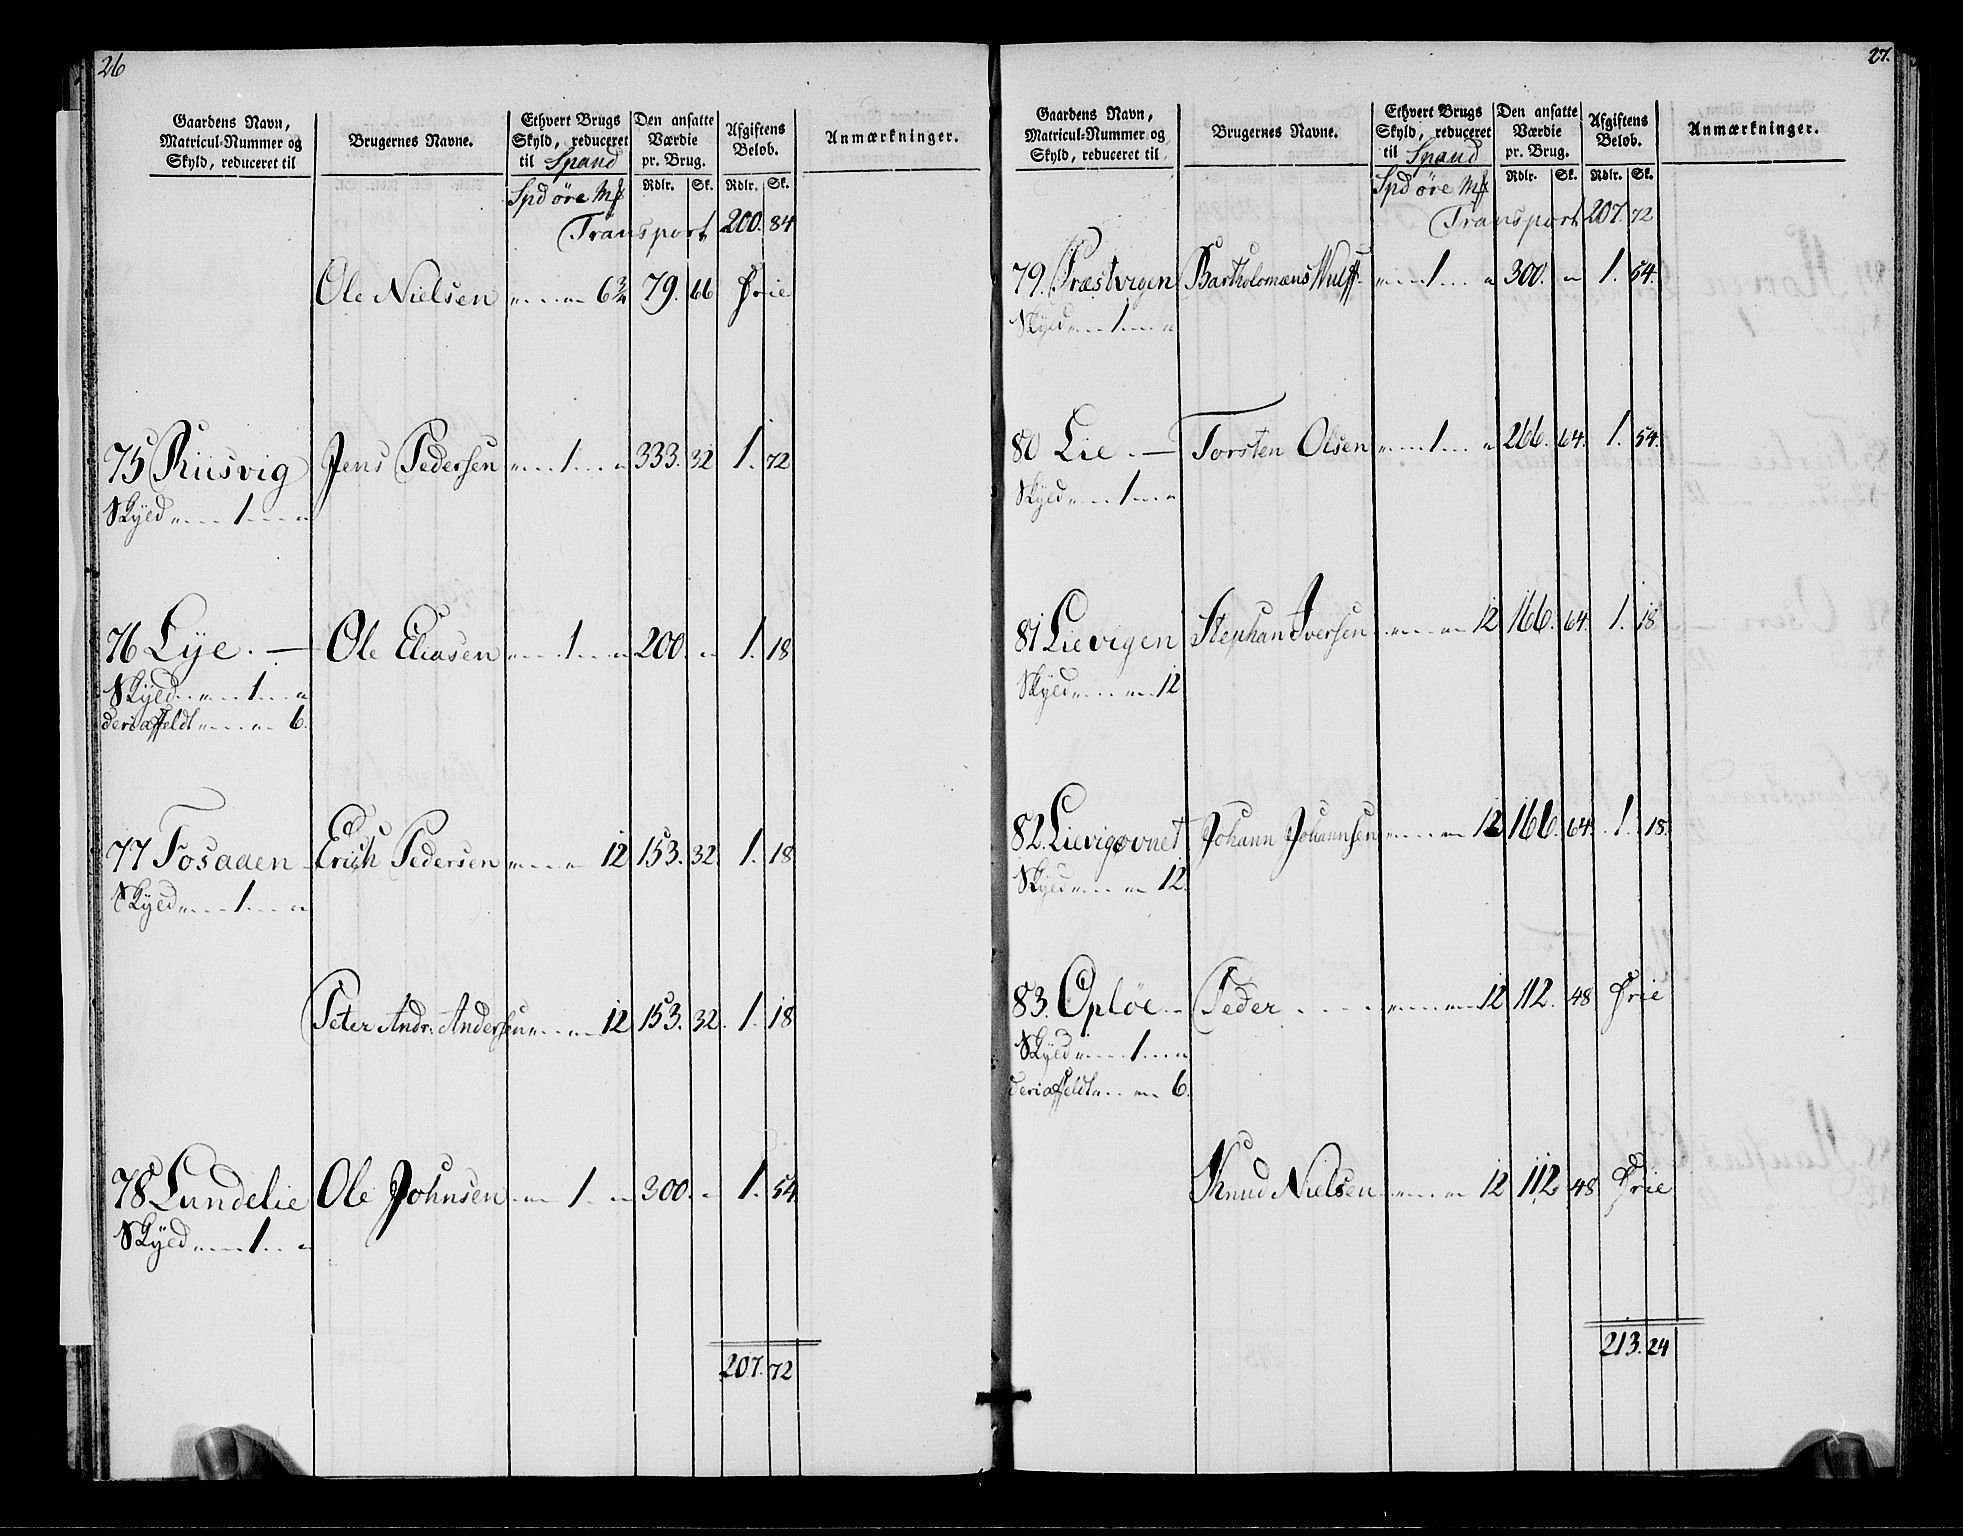 26
Gaardens Navn, Matricul-Nummer og Skyld, reduceret til
Brugernes Navne.
Ethvert Brugs Skyld, reduceret til Spand
Den ansatte Værdie pr. Brug.
Afgiftens Beløb.
Anmærkninger.
Spd øre Mk Rdlr. Sk. Rdlr. Sk.
Transport 200. 84
Ole Nielsen " " 6¾ 79. 66 Frie
75 Riisvig Jens Pedersen " 1 " 333. 32 1. 72
Skyld " 1 "
76 Lye. — Ole Eliasen " 1 " 200. " 1. 18
Skyld " 1 "
deriaffeldt " " 6.
77 Fosaaen Erich Pedersen " " 12 153. 32. 1. 18
Skyld " 1 "
Peter Andr: Andersen " " 12 153. 32. 1. 18
78 Lundelie Ole Johnsen " 1 " 300. " 1. 54
Skyld " 1 "
207. 72
27.
Gaardens Navn, Matricul-Nummer og Skyld, reduceret til
Brugernes Navne.
Ethvert Brugs Skyld, reduceret til Spand
Den ansatte Værdie pr. Brug.
Afgiftens Beløb.
Anmærkninger.
Spd øre Mk Rdlr. Sk. Rdlr. Sk.
Transport 207. 72
79. Præstvigen Bartholomæus Wulff " 1 " 300. " 1. 54.
Skyld " 1 "
80 Lie. — Torsten Olsen " 1 " 266. 64. 1. 54.
Skyld " 1 "
81 Lievigen Stephan Iversen " " 12 166. 64. 1. 18
Skyld " " 12
82. Lievigovnet Johann Johannsen " " 12 166. 64. 1. 18.
Skyld " " 12.
83. Opløe Peder " " 12 112. 48 Frie
Skyld " 1 "
deriaffeldt " " 6.
Knud Nielsen " " 12 112 48 Frie
213. 24